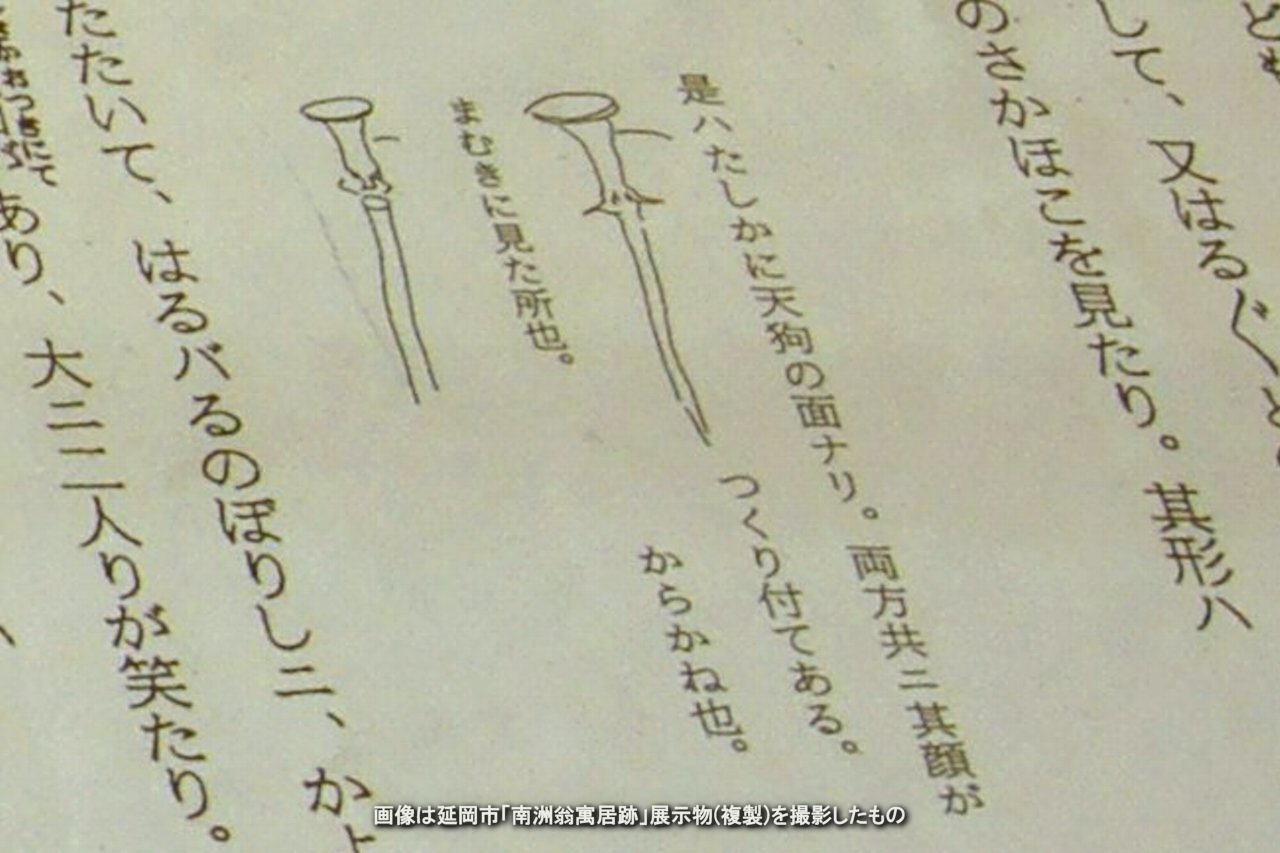 して、又はる〲と
のさかほこを見たり。其形ハ
是ハたしかに天狗の面ナリ。両方共ニ其顔が
つくり付てある。
からかね也。
まむきに見た所也。
たたいて、はるバるのぼりしニ、か
つきにて
あり、大ニ二人りが笑たり。
画像は延岡市｢南洲翁寓居跡｣展示物(複製)を撮影したもの